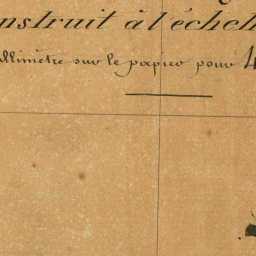 nstruit à l'échell
llimètre sur le papier pour 4